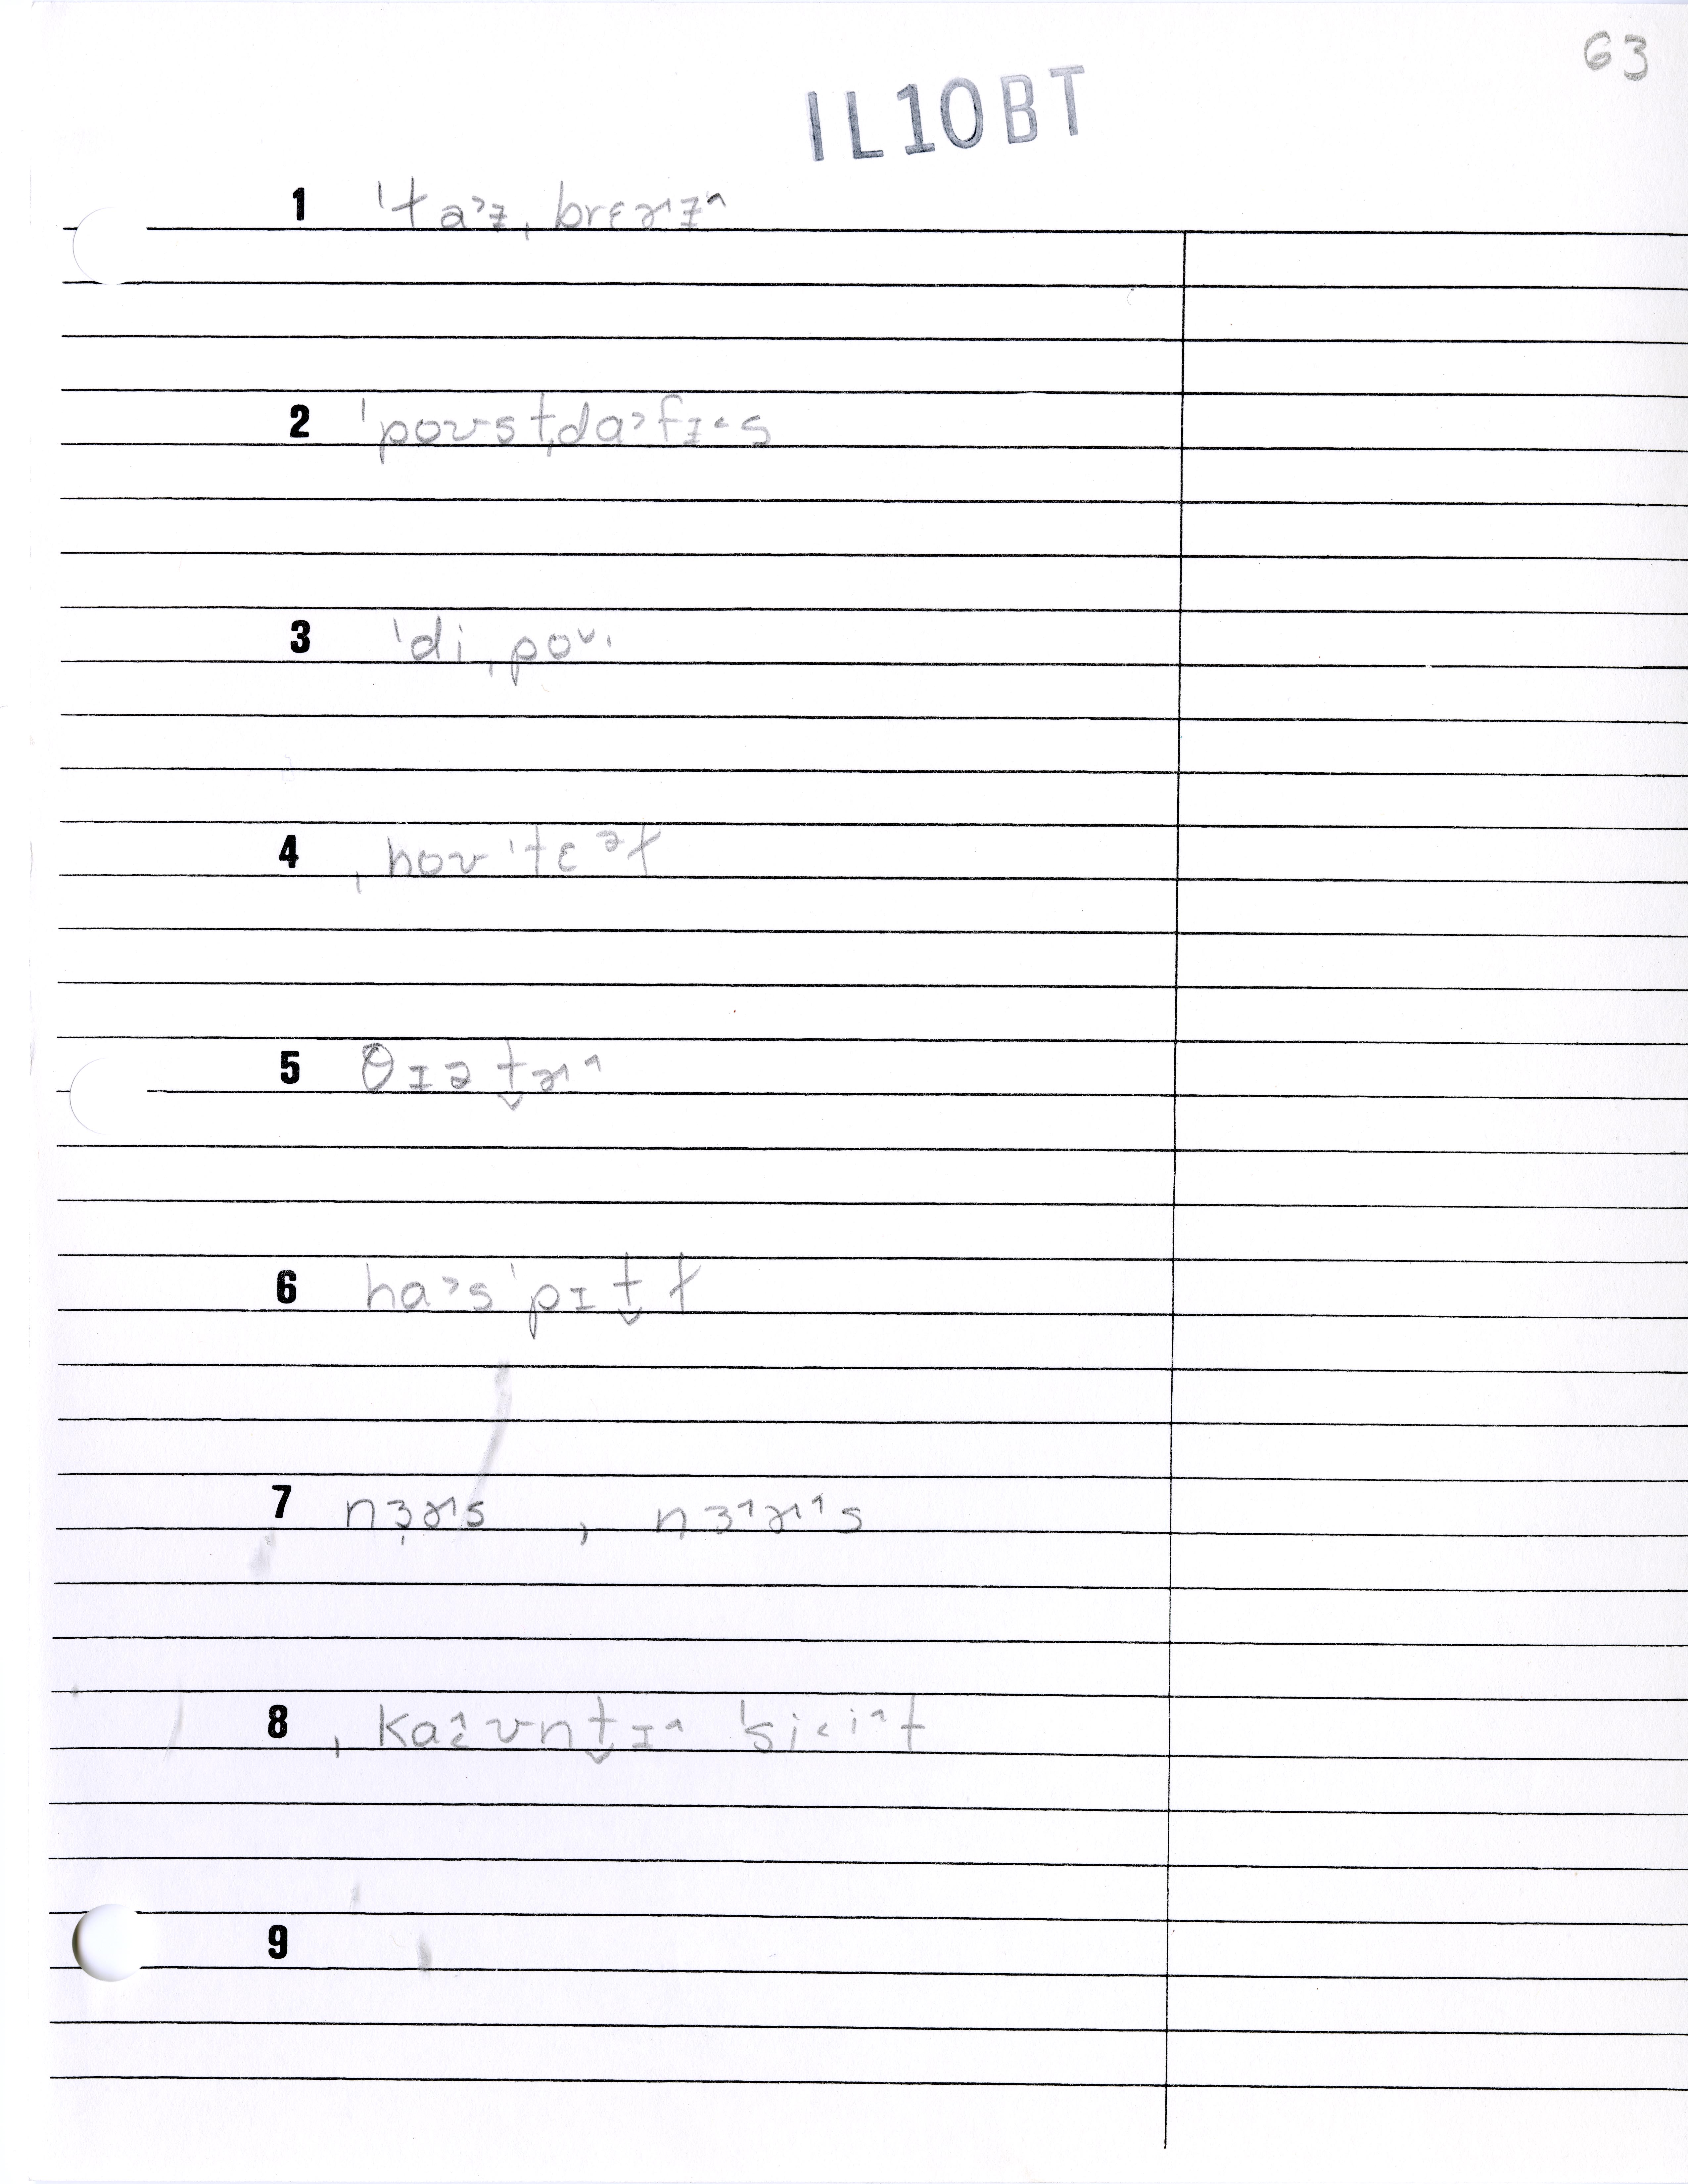 63
IL10BT
1 ˈta˃ɪ̵ˌbrɛɚzˆ
2 ˈpoʊstˌda˃fɪ˂s
3 ˈdiˌpoᶷ·
4 ˌhoʊˈtɛᵊɫ
5 θɪət̬ɚˆ
6 ha˃sˈpɪt̬ɫ
7 nɜ̣ɚs , nɜˆɚˆs
8 ˌkaˆ˂ʊnt̬ɪˆ ˈsi˂iˆt
9